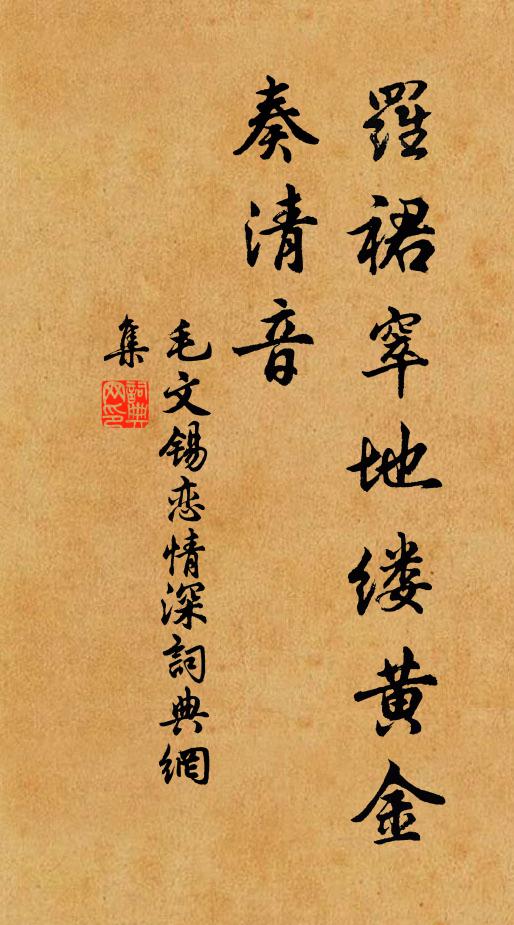 羅裙窣地缕黄金
奏清音
毛文锡恋情深詞典網
集
詞典网印